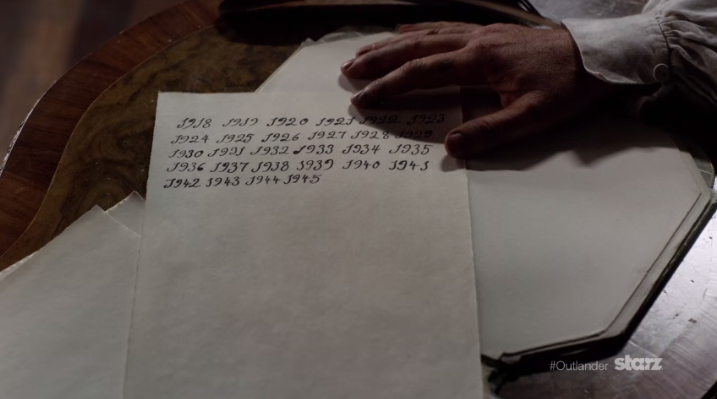 1918 1919 1920 1921 1922 1923
1924 1925 1926 1927 1928 1929
1930 1931 1932 1933 1934 1935
1936 1937 1938 1939 1940 1941
1942 1943 1944 1945
#Outlander starz